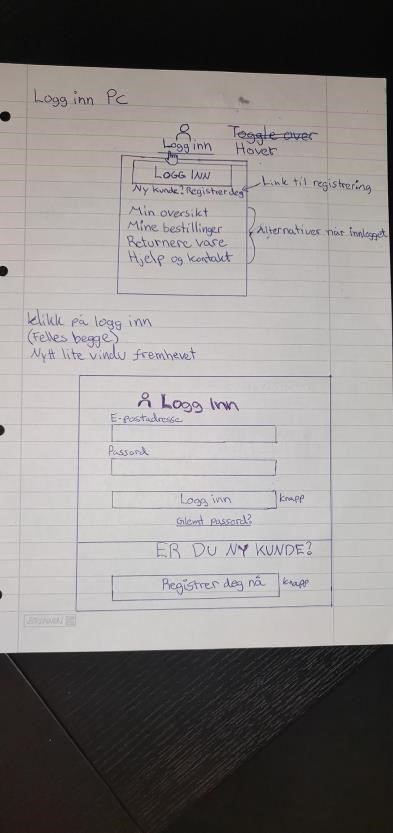 Logg inn PC
Toggle over
Logg inn
Hover
LOGG INN
Ny kunde? Registrer deg
Link til registrering
Min oversikt
Mine bestillinger
Returnere vare
Hjelp og kontakt
Alternativer når innlogget
klikk på logg inn
(Felles begge)
Nytt lite vindu fremhevet
Logg Inn
E-postadresse
Passord
Logg inn
knapp
Glemt passord?
ER DU NY KUNDE?
Registrer deg nå
knapp